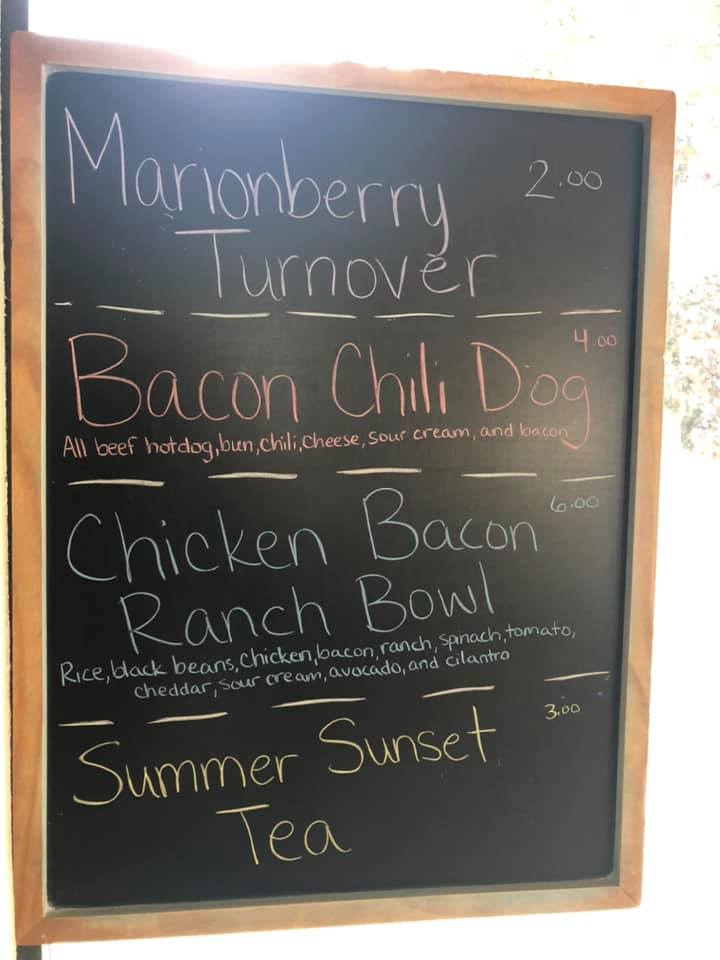 Marionberry 2.00
Turnover
Bacon Chili Dog 4.00
All beef hotdog, bun, chili, cheese, sour cream, and bacon
Chicken Bacon 6.00
Ranch Bowl
Rice, black beans, chicken, bacon, ranch, spinach, tomato,
cheddar, sour cream, avocado, and cilantro
Summer Sunset 3.00
Tea